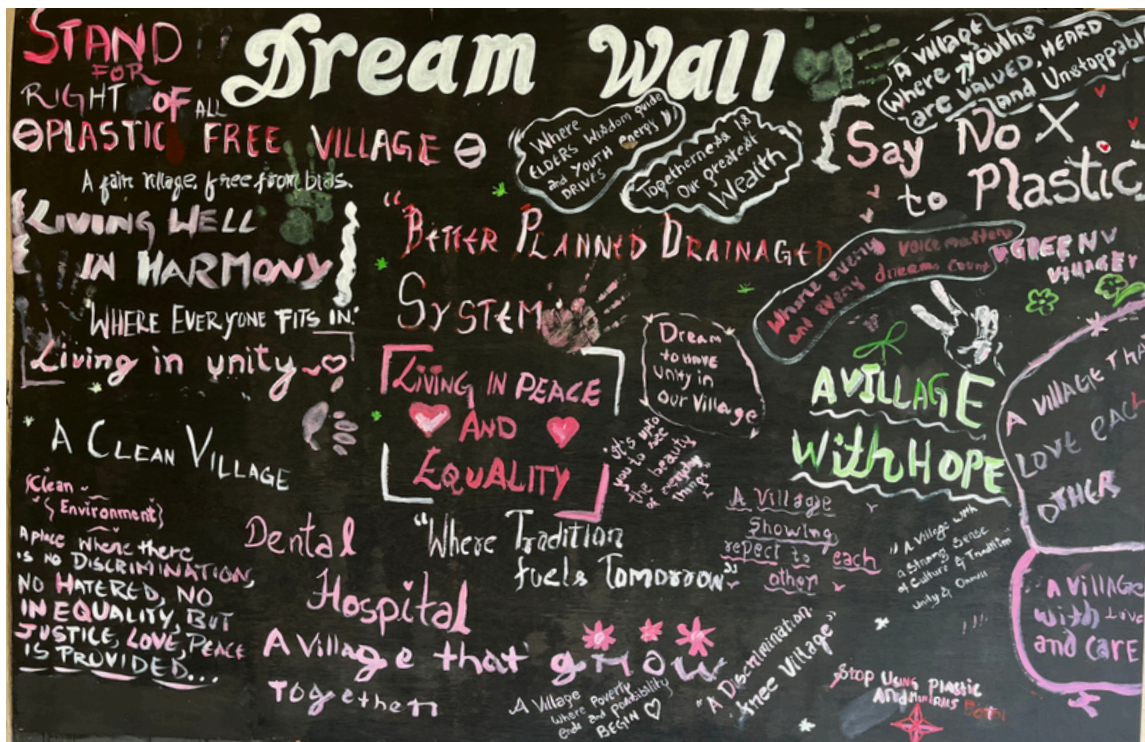 Dream Wall
STAND
FOR
RIGHT OF ALL
PLASTIC FREE VILLAGE
A fair village, free from bias.
LIVING WELL
IN HARMONY
"WHERE EVERYONE FITS IN."
Living in unity
A CLEAN VILLAGE
Clean
Environment
A place where there
is no DISCRIMINATION,
NO HATERED, NO
IN EQUALITY, BUT
JUSTICE, LOVE, PEACE
IS PROVIDED...
Where
ELDERS WISDOM guide
and YOUTH energy
DRIVES
Togetherness is
Our greatest
Wealth
"BETTER PLANNED DRAINAGED
SYSTEM
LIVING IN PEACE
AND
EQUALITY
Dream
to have
unity in
Our Village
"It's upto
you to see
the beauty
of everyday
things"
"Where Tradition
fuels TOMORROW"
Dental
Hospital
A Village that grow
Together
A Village
where Poverty
ends and Possibility
BEGIN
"A Discrimination
free Village"
A Village
Showing
repect to each
other
A village
where youths
are VALUED, HEARD
and Unstoppable
Say No X
to Plastic
Where every voice matters
and every dreams count
GREENV
VILLAGE
A VILLAGE
With HOPE
A VILLAGE THAT
LOVE EACH
OTHER
A VILLAGE
with Love
and CARE
"A Village with
a Strong Sense
of Culture & Tradition
Unity &
Stop Using Plastic
AND